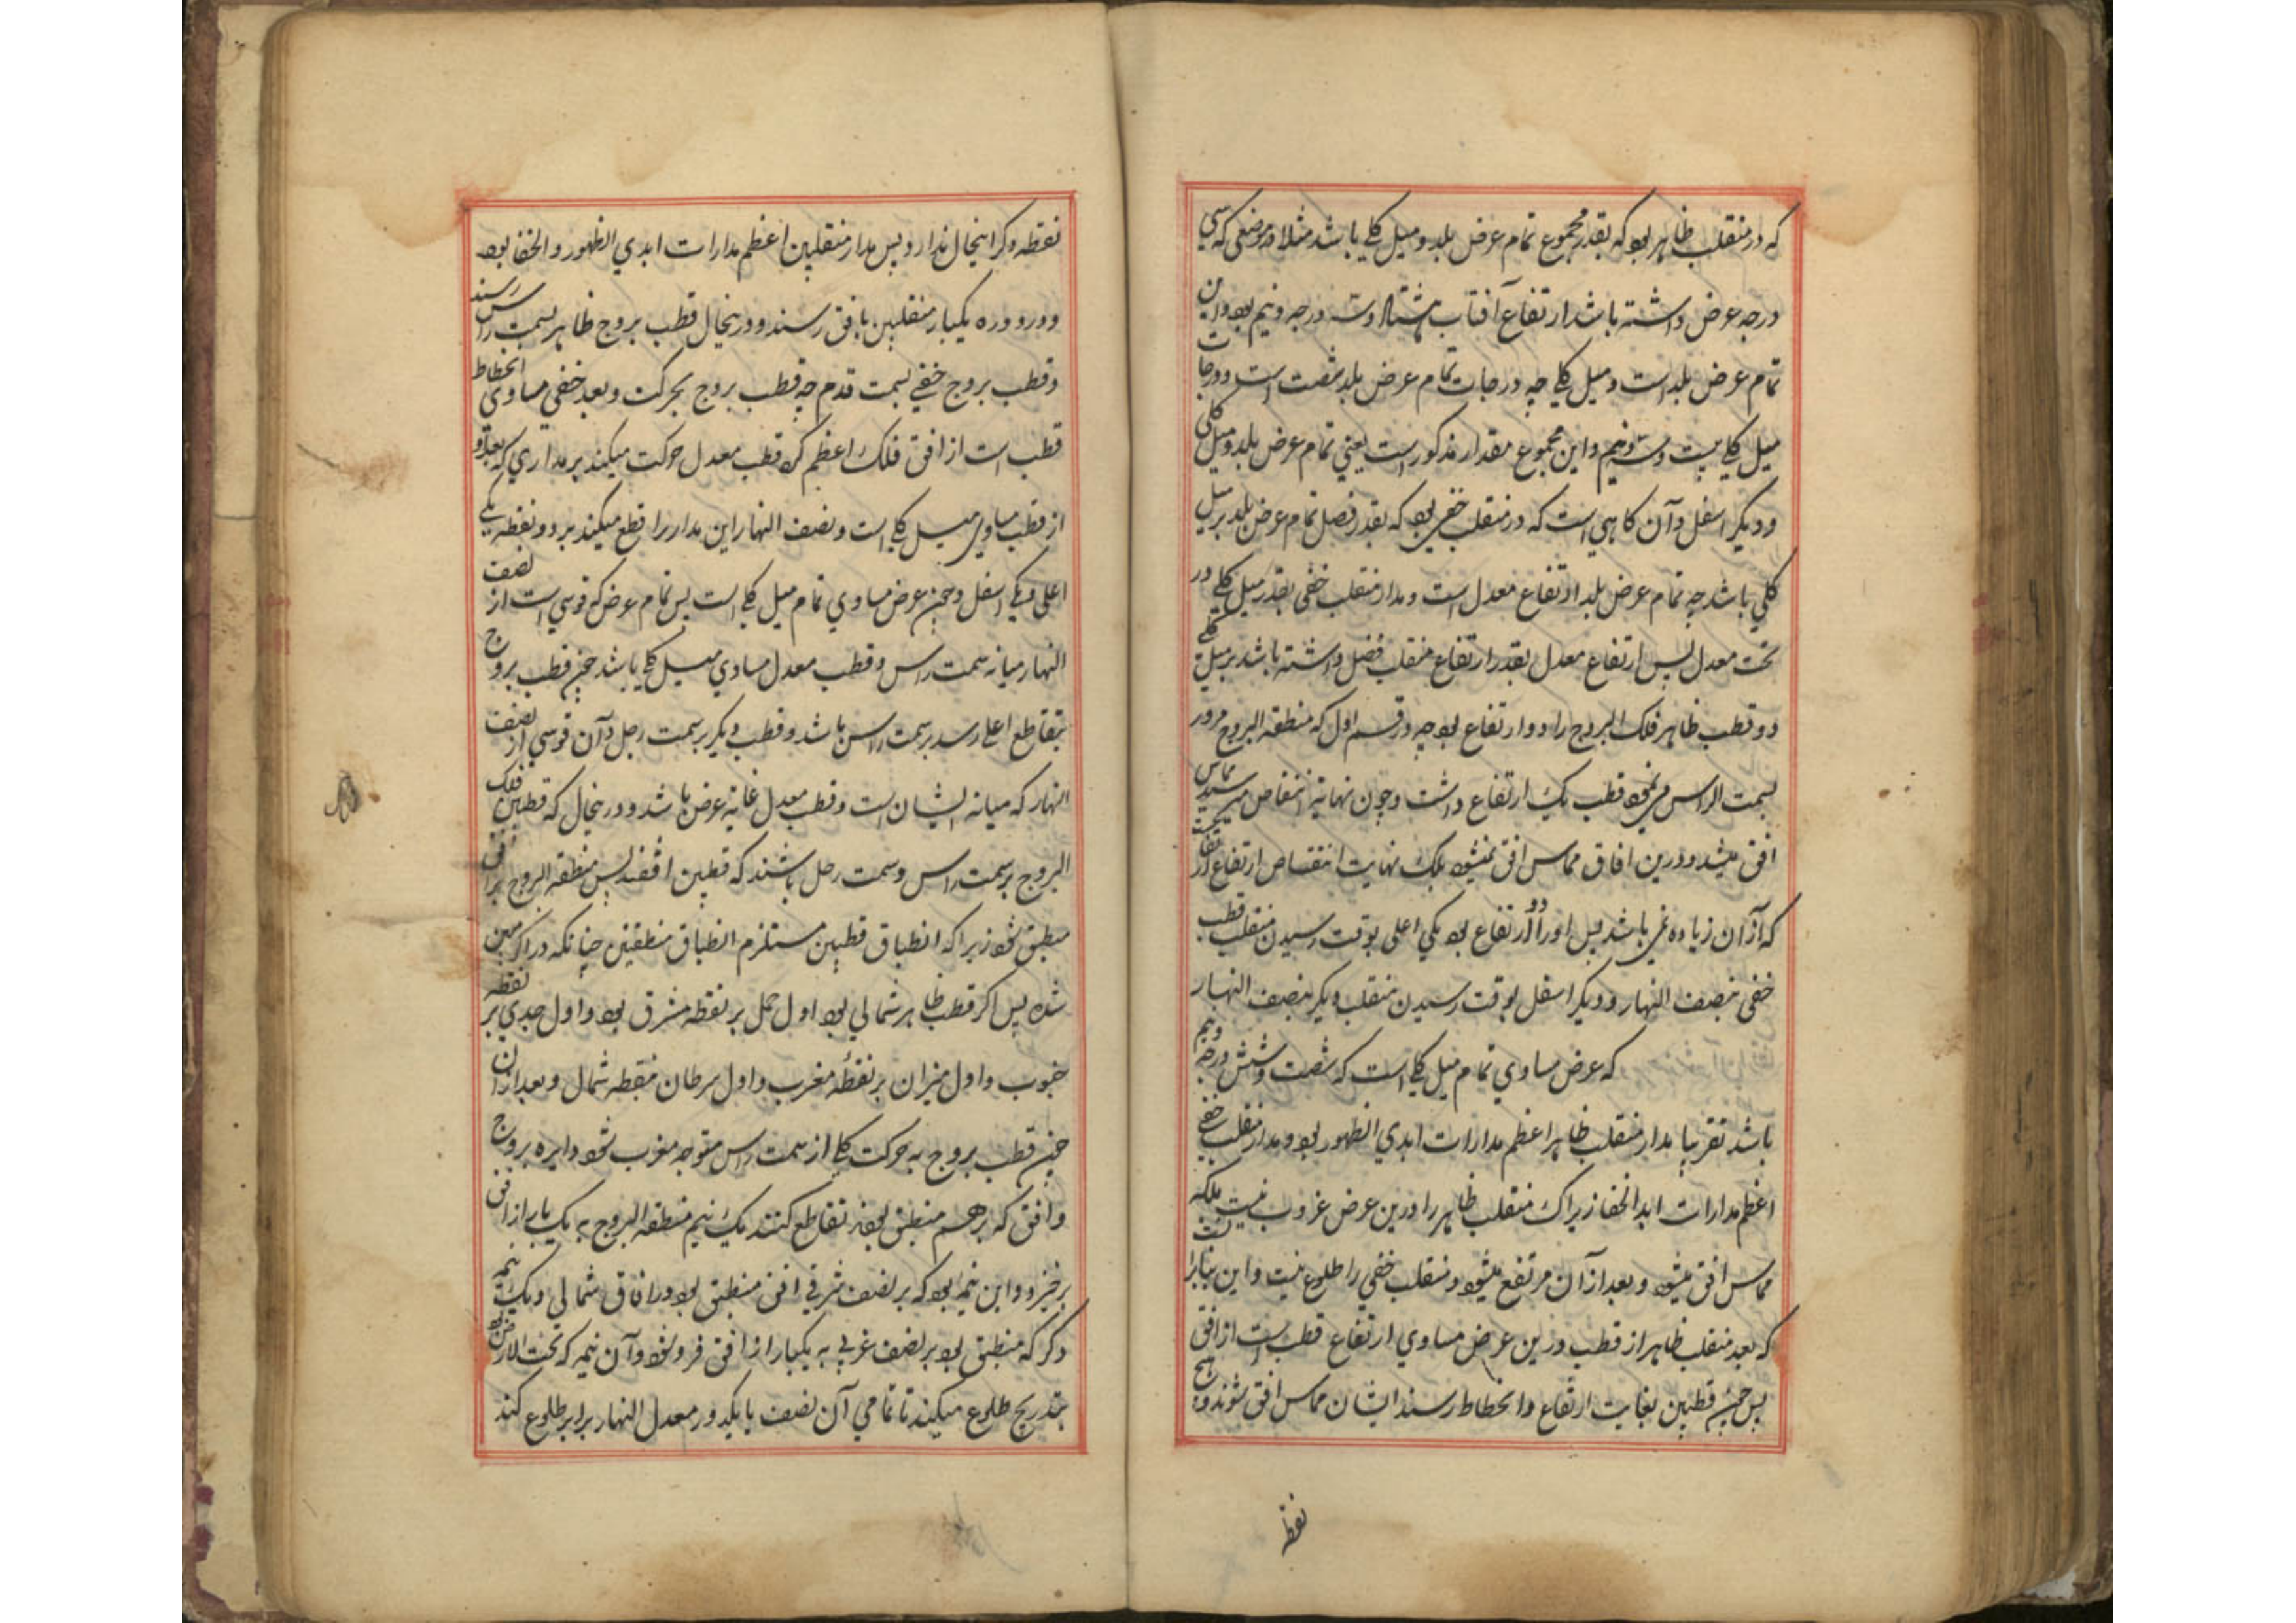 که در منقلب ظاهر بود که بقدر مجموع تمام عرض بلد و میل کلی باشد مثلا در موضعی که سی
درجه عرض داشته باشد ارتفاع آفتاب هشتاد و سه درجه و نیم بود و این
تمام عرض بلد است و میل کلی چه درجات تمام عرض بلد شصت است و درجات
میل کلی بیست و سه و نیم و این مجموع مقدار مذکور است یعنی تمام عرض بلد و میل کلی
و دیگر اسفل و آن کاهی است که در منقلب خفی بود که بقدر فضل تمام عرض بلد بر میل
کلی باشد چه تمام عرض بلد ارتفاع معدل است و مدار منقلب خفی بقدر میل کلی در
تحت معدل پس ارتفاع معدل بقدر ارتفاع منقلب فضل داشته باشد بر میل کلی
و قطب ظاهر فلک البروج را دو ارتفاع بود چه در قسم اول که منطقة البروج مرور
بسمت الراس می نمود قطب یک ارتفاع داشت و چون نهایة انتقاص میرسید مماس
افق میشد و درین افاق مماس افق نمیشود بلکه نهایت انتقاص ارتفاع
که از آن زیاده نمی باشد پس او را دو ارتفاع بود یکی اعلی بوقت رسیدن منقلب قطب
خفی بنصف النهار و دیگر اسفل بوقت رسیدن منقلب دیگر بنصف النهار
که عرض مساوی تمام میل کلی است که شصت و شش درجه و نیم
باشد تقریبا مدار منقلب ظاهر اعظم مدارات ابدی الظهور بود و مدار منقلب خفی
اعظم مدارات ابد الخفا زیراک منقلب ظاهر را درین عرض غروب نیست بلکه
مماس افق میشود و بعد از آن مرتفع میشود و منقلب خفی را طلوع نیست و این بنابر آنست
که بعد منقلب ظاهر از قطب درین عرض مساوی ارتفاع قطب است از افق
پس چون قطبین بغایت ارتفاع و انحطاط رسند ایشان مماس افق شوند و هیچ
نقطه
نقطه دکر اینحال ندارد و پس مدار منقلبین اعظم مدارات ابدی الظهور و الخفا بود
و در دوره یکبار منقلبین بافق رسند و درینحال قطب بروج ظاهر بسمت راس رسند
و قطب بروج خفی بسمت قدم چه قطب بروج بحرکت و بعد خفی مساوی انحطاط
قطب است از افق فلک اعظم کرد قطب معدل حرکت میکند بر مداری که بعد او
از قطب مساوی میل کلی است و نصف النهار این مدار را قطع میکند بر دو نقطه یکی
اعلی و یکی اسفل و چون عرض مساوی تمام میل کلی است پس تمام عرض که قوسی است از نصف
النهار میانه سمت راس و قطب معدل مساوی میل کلی باشد چون قطب بروج
بتقاطع اعلی رسد بر سمت راس باشد و قطب دیگر بر سمت رجل و آن قوسی از نصف
النهار که میانه ایشان است و قطب معدل غایة عرض باشد و درینحال که قطبین فلک
البروج بر سمت راس و سمت رجل باشند که قطبین افقند پس منطقة البروج بر افق
منطبق شود زیراکه انطباق قطبین مستلزم انطباق منطقتین چنانکه در اکر مبین
شده پس اکر قطب ظاهر شمالی بود اول حمل بر نقطه مشرق بود و اول جدی بر نقطه
جنوب و اول میزان بر نقطه مغرب و اول سرطان بنقطه شمال و بعد از آن
چون قطب بروج به حرکت کل از سمت راس متوجه مغرب شود دایره بروج
و افق که بر هم منطبق بودند تقاطع کنند یک نیم منطقة البروج به یک بار از افق
برخیزد و این نیمه بود که بر نصف شرقی افق منطبق بود در افاق شمالی و یک نیمه
دکر که منطبق بود بر نصف غربی به یکبار از افق فرو شود و آن نیمه که تحت الارض بود
بتدریج طلوع میکند تا تمامی آن نصف با یکدور معدل النهار برابر طلوع کند